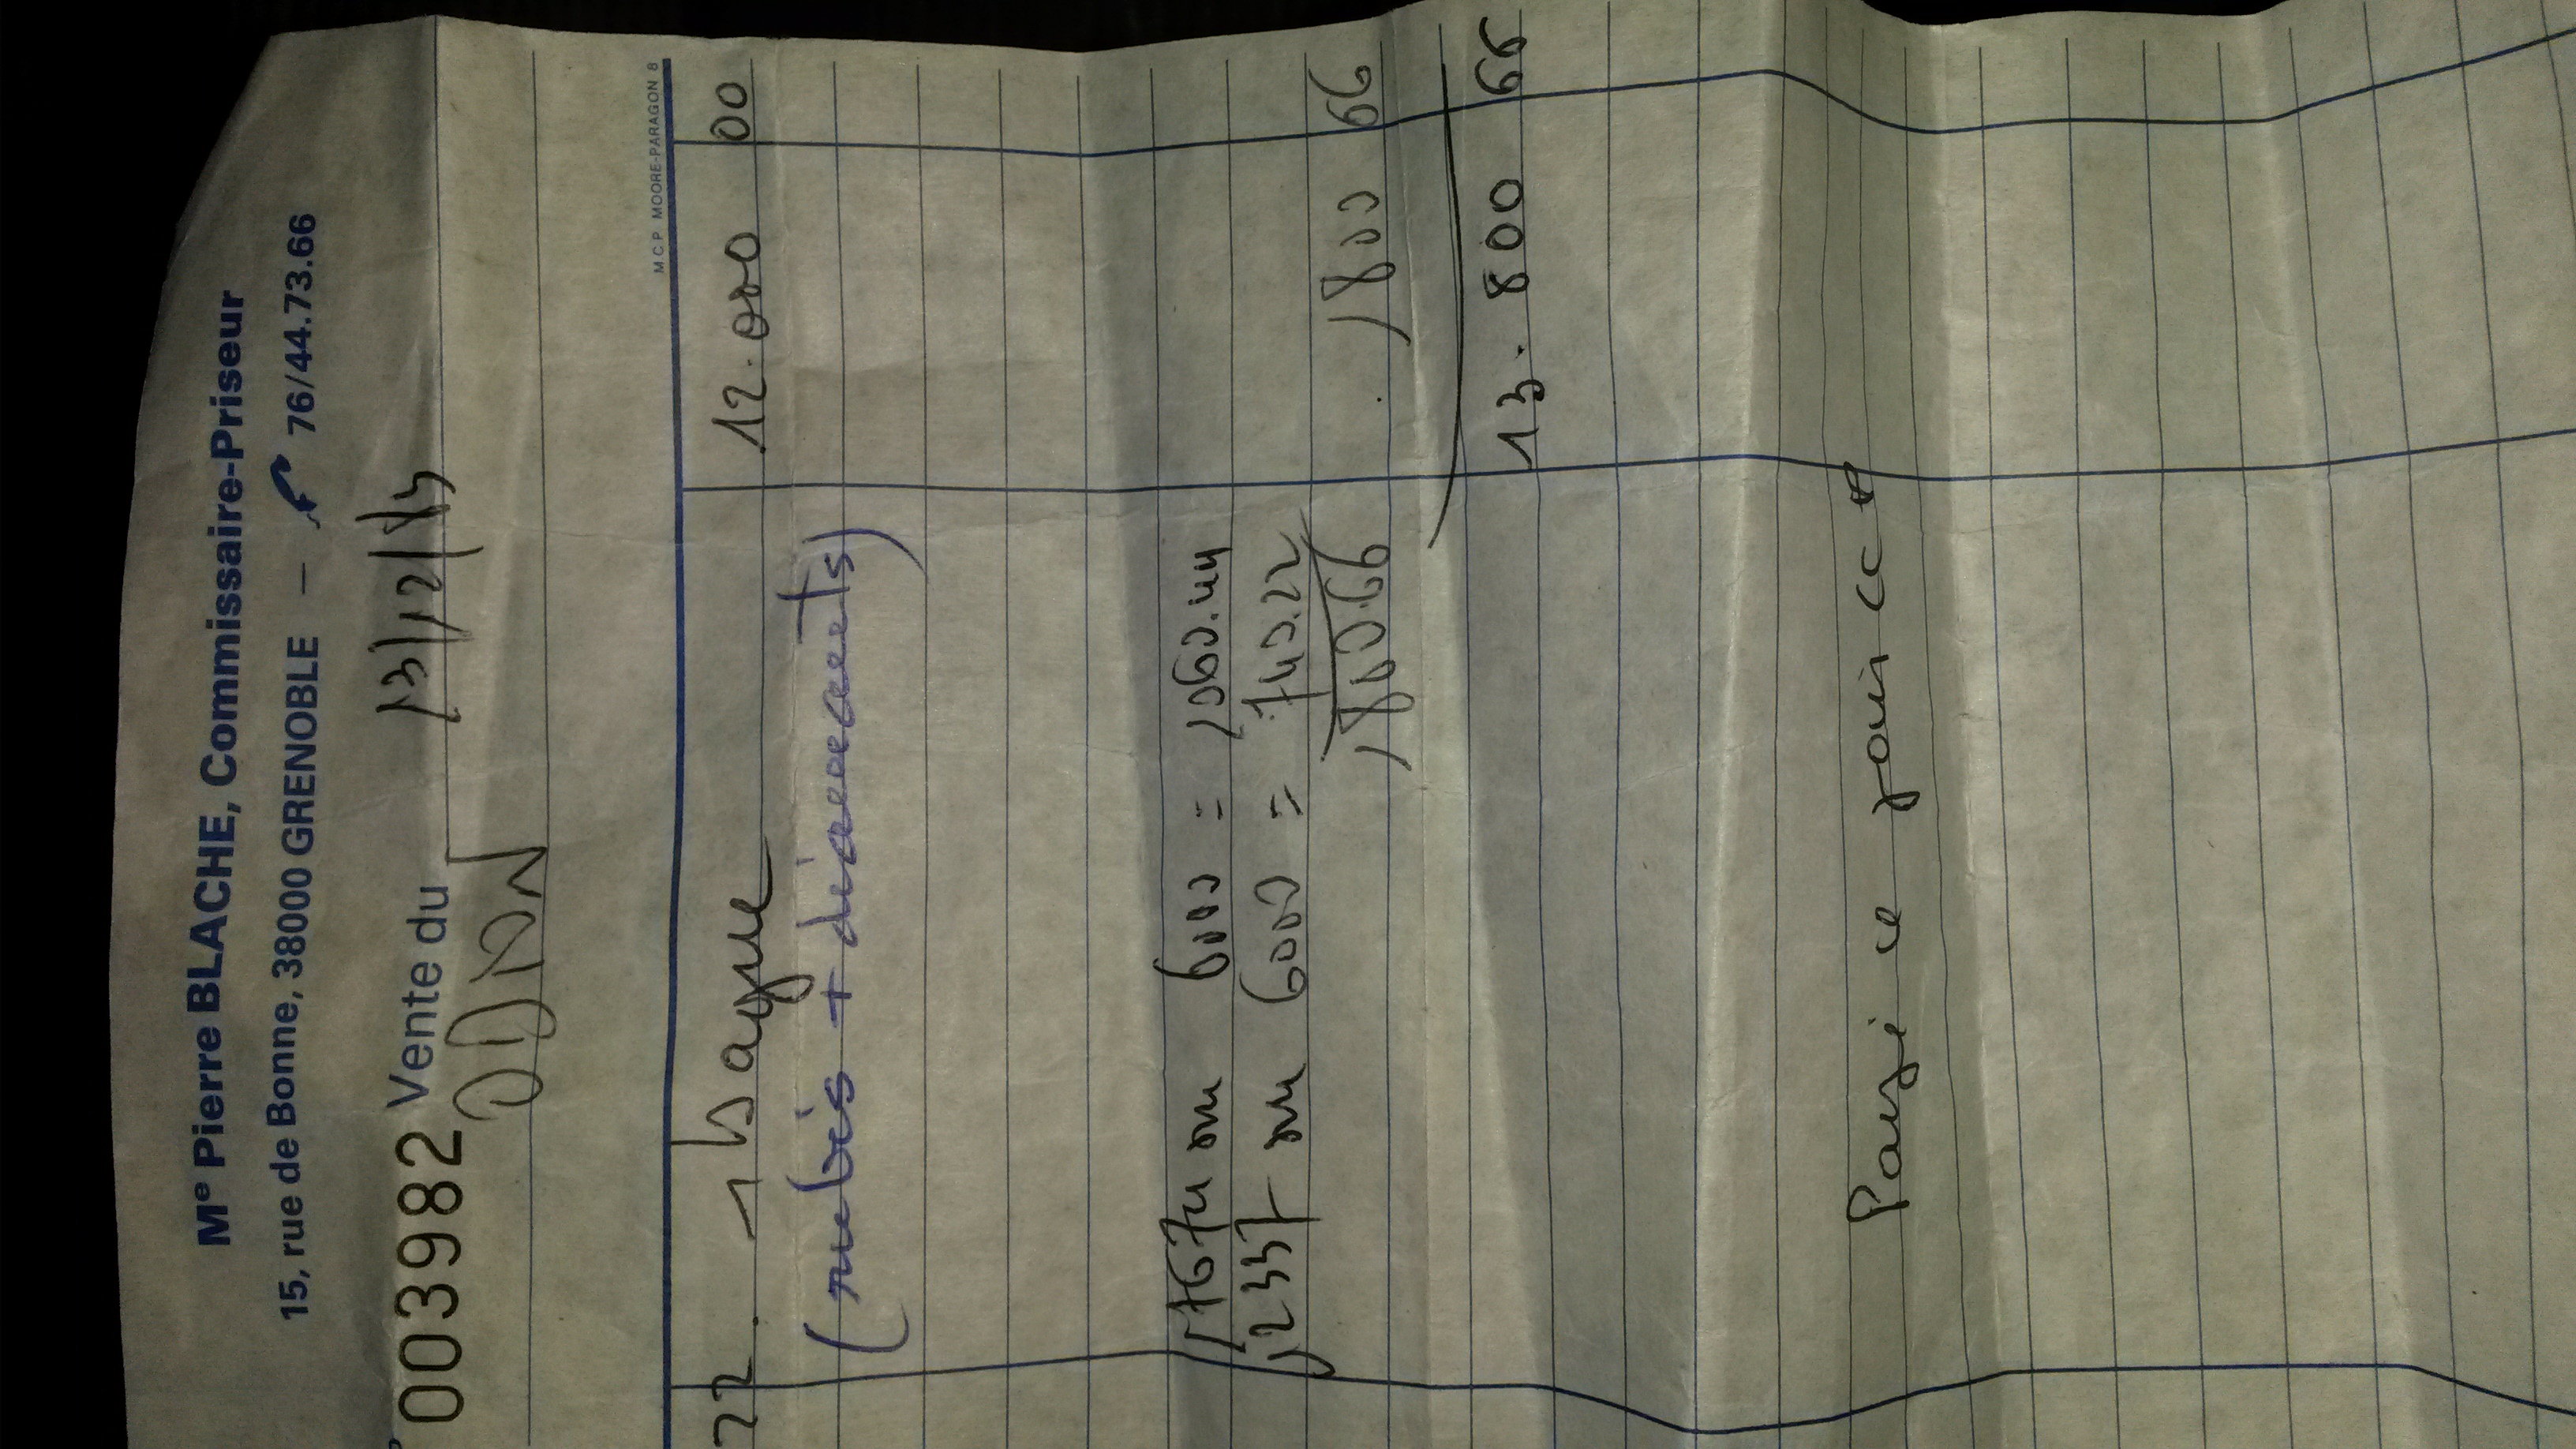 Me Pierre BLACHE, Commissaire-Priseur
15, rue de Bonne, 38000 GRENOBLE — 76/44.73.66
003982 Vente du 13/12/83
M.C.P MOORE-PARAGON 8
22. 1 bague 12.000 00
(rubis + diamants)
17674 sur 6000 = 1060.44
12337 sur 6000 = 740.22
1800.66 1800 66
13.800 66
Payé ce jour